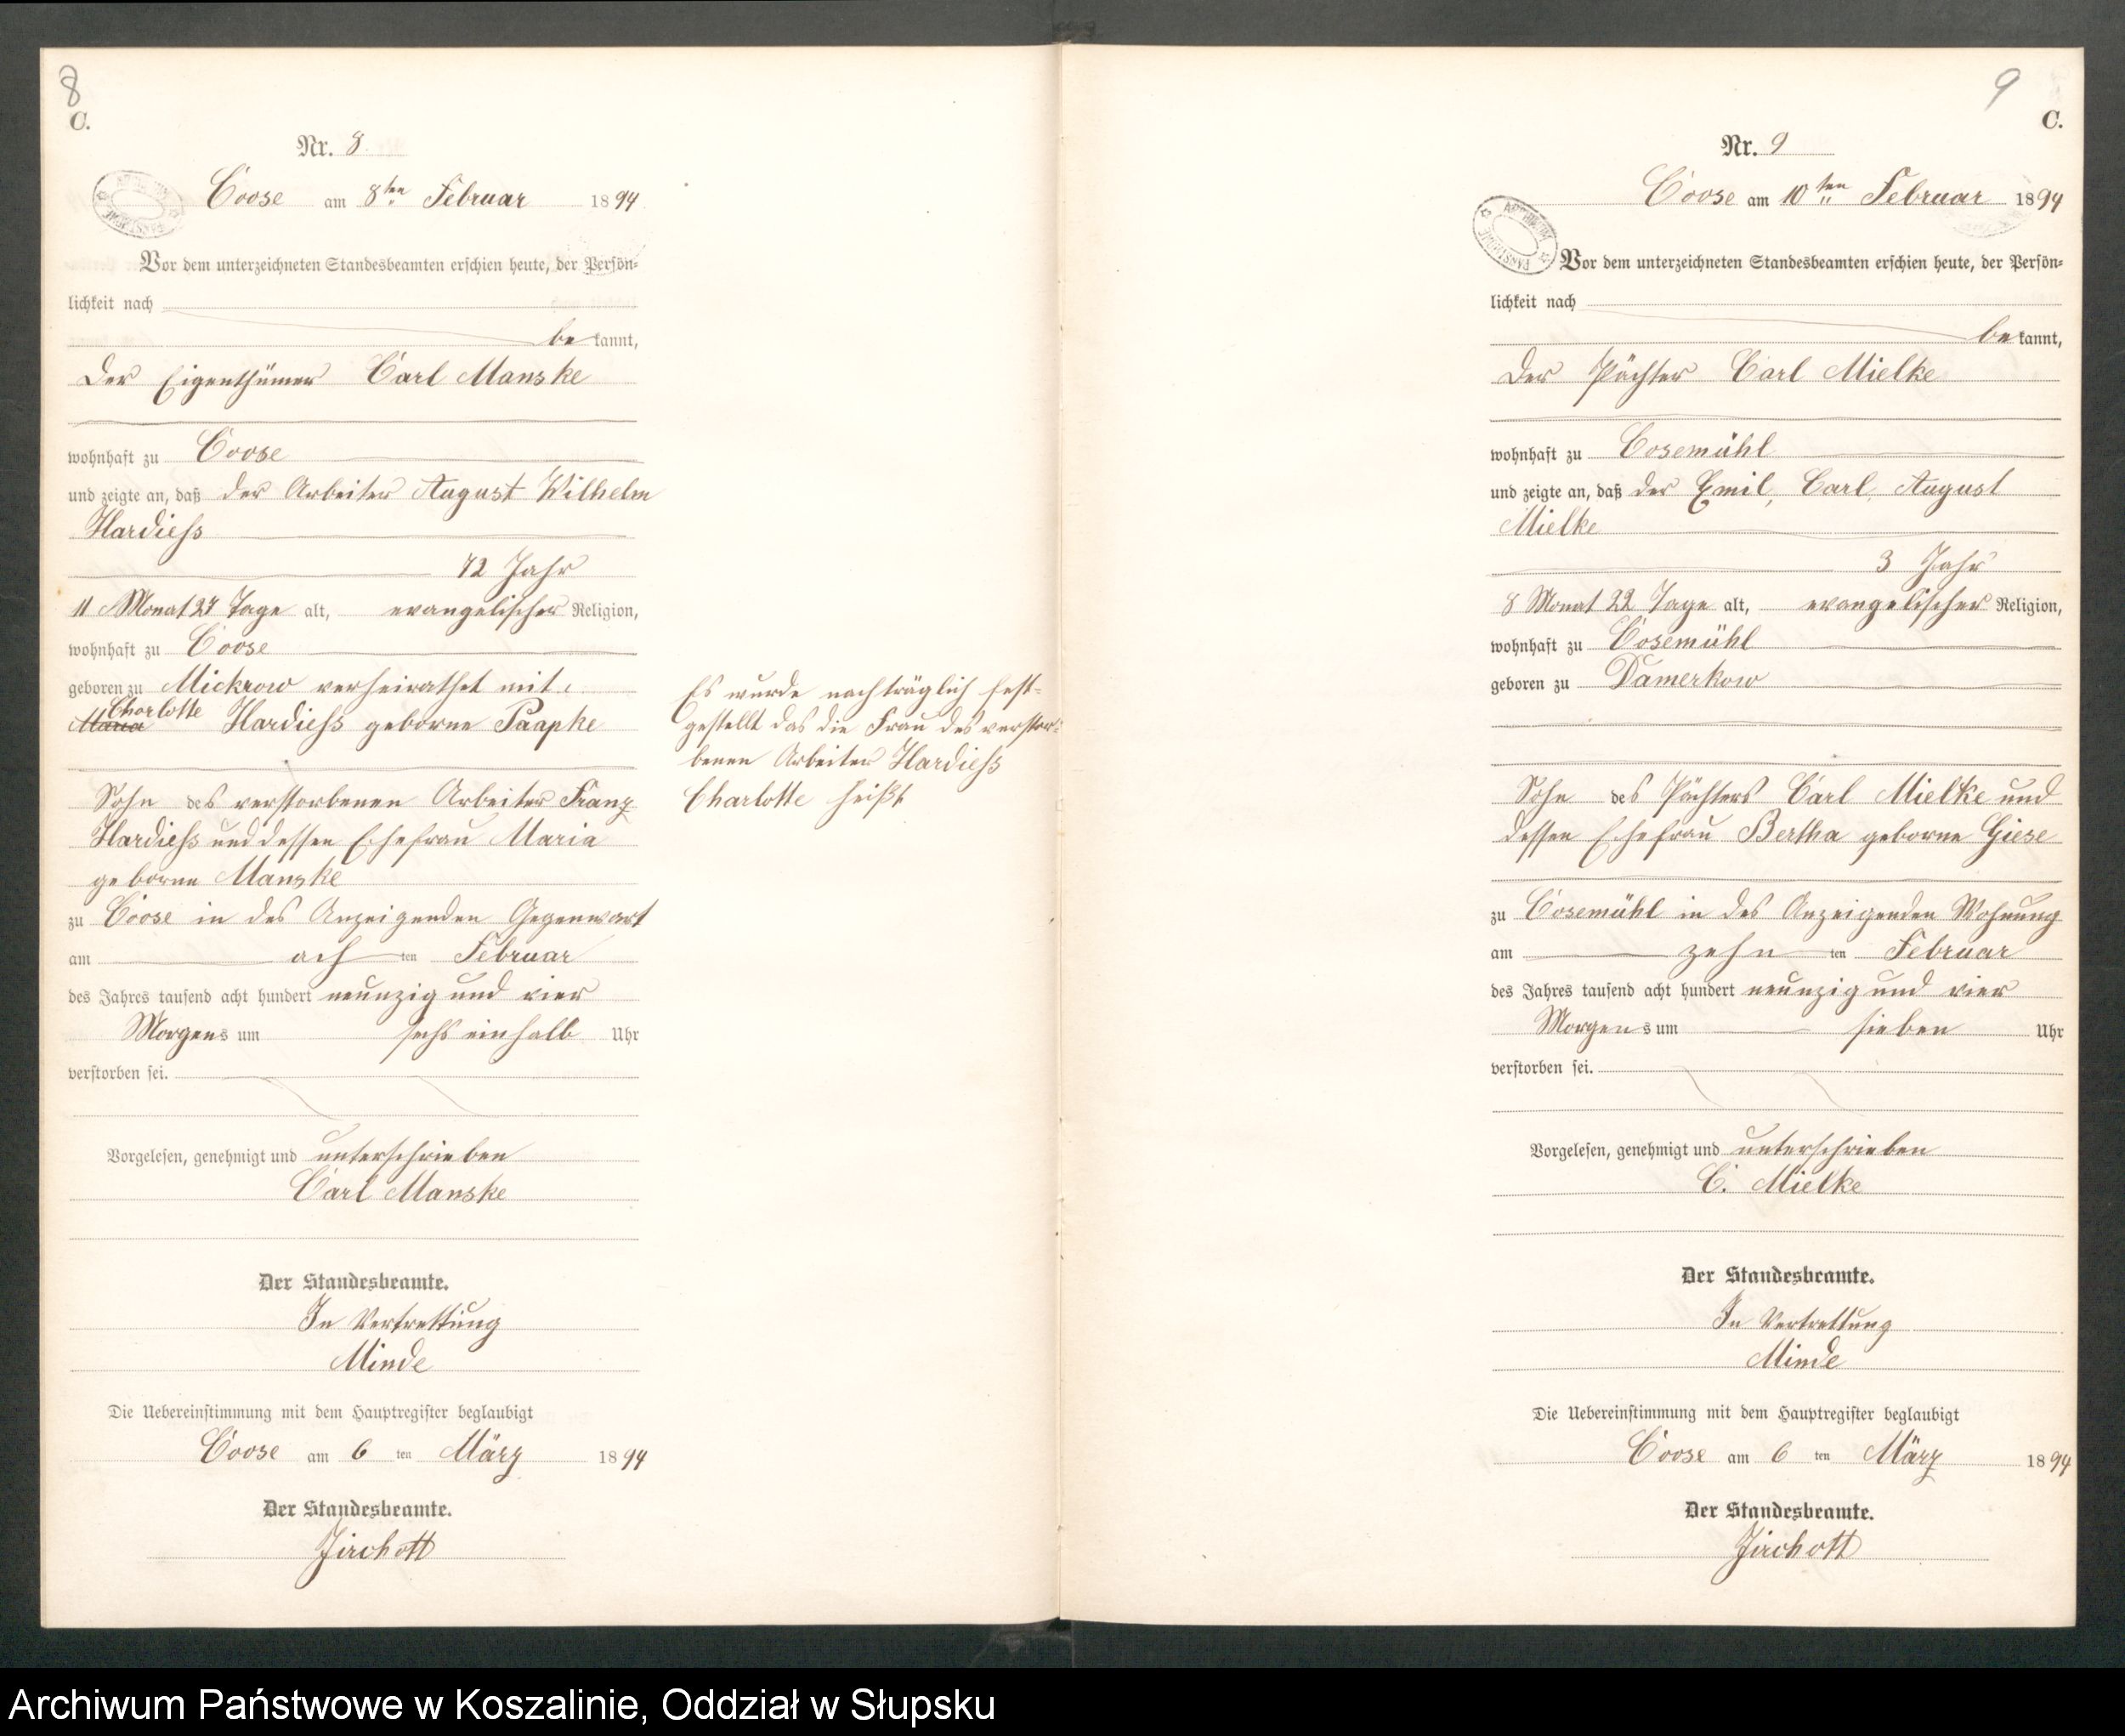 8
C.
Nr. 8
Coose am 8ten Februar 1894
Vor dem unterzeichneten Standesbeamten erschien heute, der Persön-
lichkeit nach
bekannt,
der Eigenthümer Carl Manske
wohnhaft zu Coose
und zeigte an, daß der Arbeiter August Wilhelm
Hardiess
72 Jahr
11 Monat 27 Tage alt, evangelischer Religion,
wohnhaft zu Coose
geboren zu Mickrow verheirathet mit
Charlotte
Maria Hardiess geborne Paapke
Sohn des verstorbenen Arbeiter Franz
Hardiess und dessen Ehefrau Maria
geborne Manske
zu Coose in des Anzeigenden Gegenwart
am ach ten Februar
des Jahres tausend acht hundert neunzig und vier
Morgens um sechs einhalb Uhr
verstorben sei.
Vorgelesen, genehmigt und unterschrieben
Carl Manske
Der Standesbeamte.
In Vertrettung
Minde
Die Uebereinstimmung mit dem Hauptregister beglaubigt
Coose am 6 ten März 1894
Der Standesbeamte.
Zirchott
Es wurde nachträglich fest-
gestellt das die Frau des verstor-
benen Arbeiter Hardiess
Charlotte heißt
9
C.
Nr. 9
Coose am 10ten Februar 1894
Vor dem unterzeichneten Standesbeamten erschien heute, der Persön-
lichkeit nach
bekannt,
der Pächter Carl Mielke
wohnhaft zu Cosemühl
und zeigte an, daß der Emil, Carl, August
Mielke
3 Jahr
8 Monat 22 Tage alt, evangelischer Religion,
wohnhaft zu Cosemühl
geboren zu Damerkow
Sohn des Pächters Carl Mielke und
dessen Ehefrau Bertha geborne Giese
zu Cosemühl in des Anzeigenden Wohnung
am zehn ten Februar
des Jahres tausend acht hundert neunzig und vier
Morgens um sieben Uhr
verstorben sei.
Vorgelesen, genehmigt und unterschrieben
C. Mielke
Der Standesbeamte.
In Vertrettung
Minde
Die Uebereinstimmung mit dem Hauptregister beglaubigt
Coose am 6 ten März 1894
Der Standesbeamte.
Zirchott
Archiwum Państwowe w Koszalinie, Oddział w Słupsku